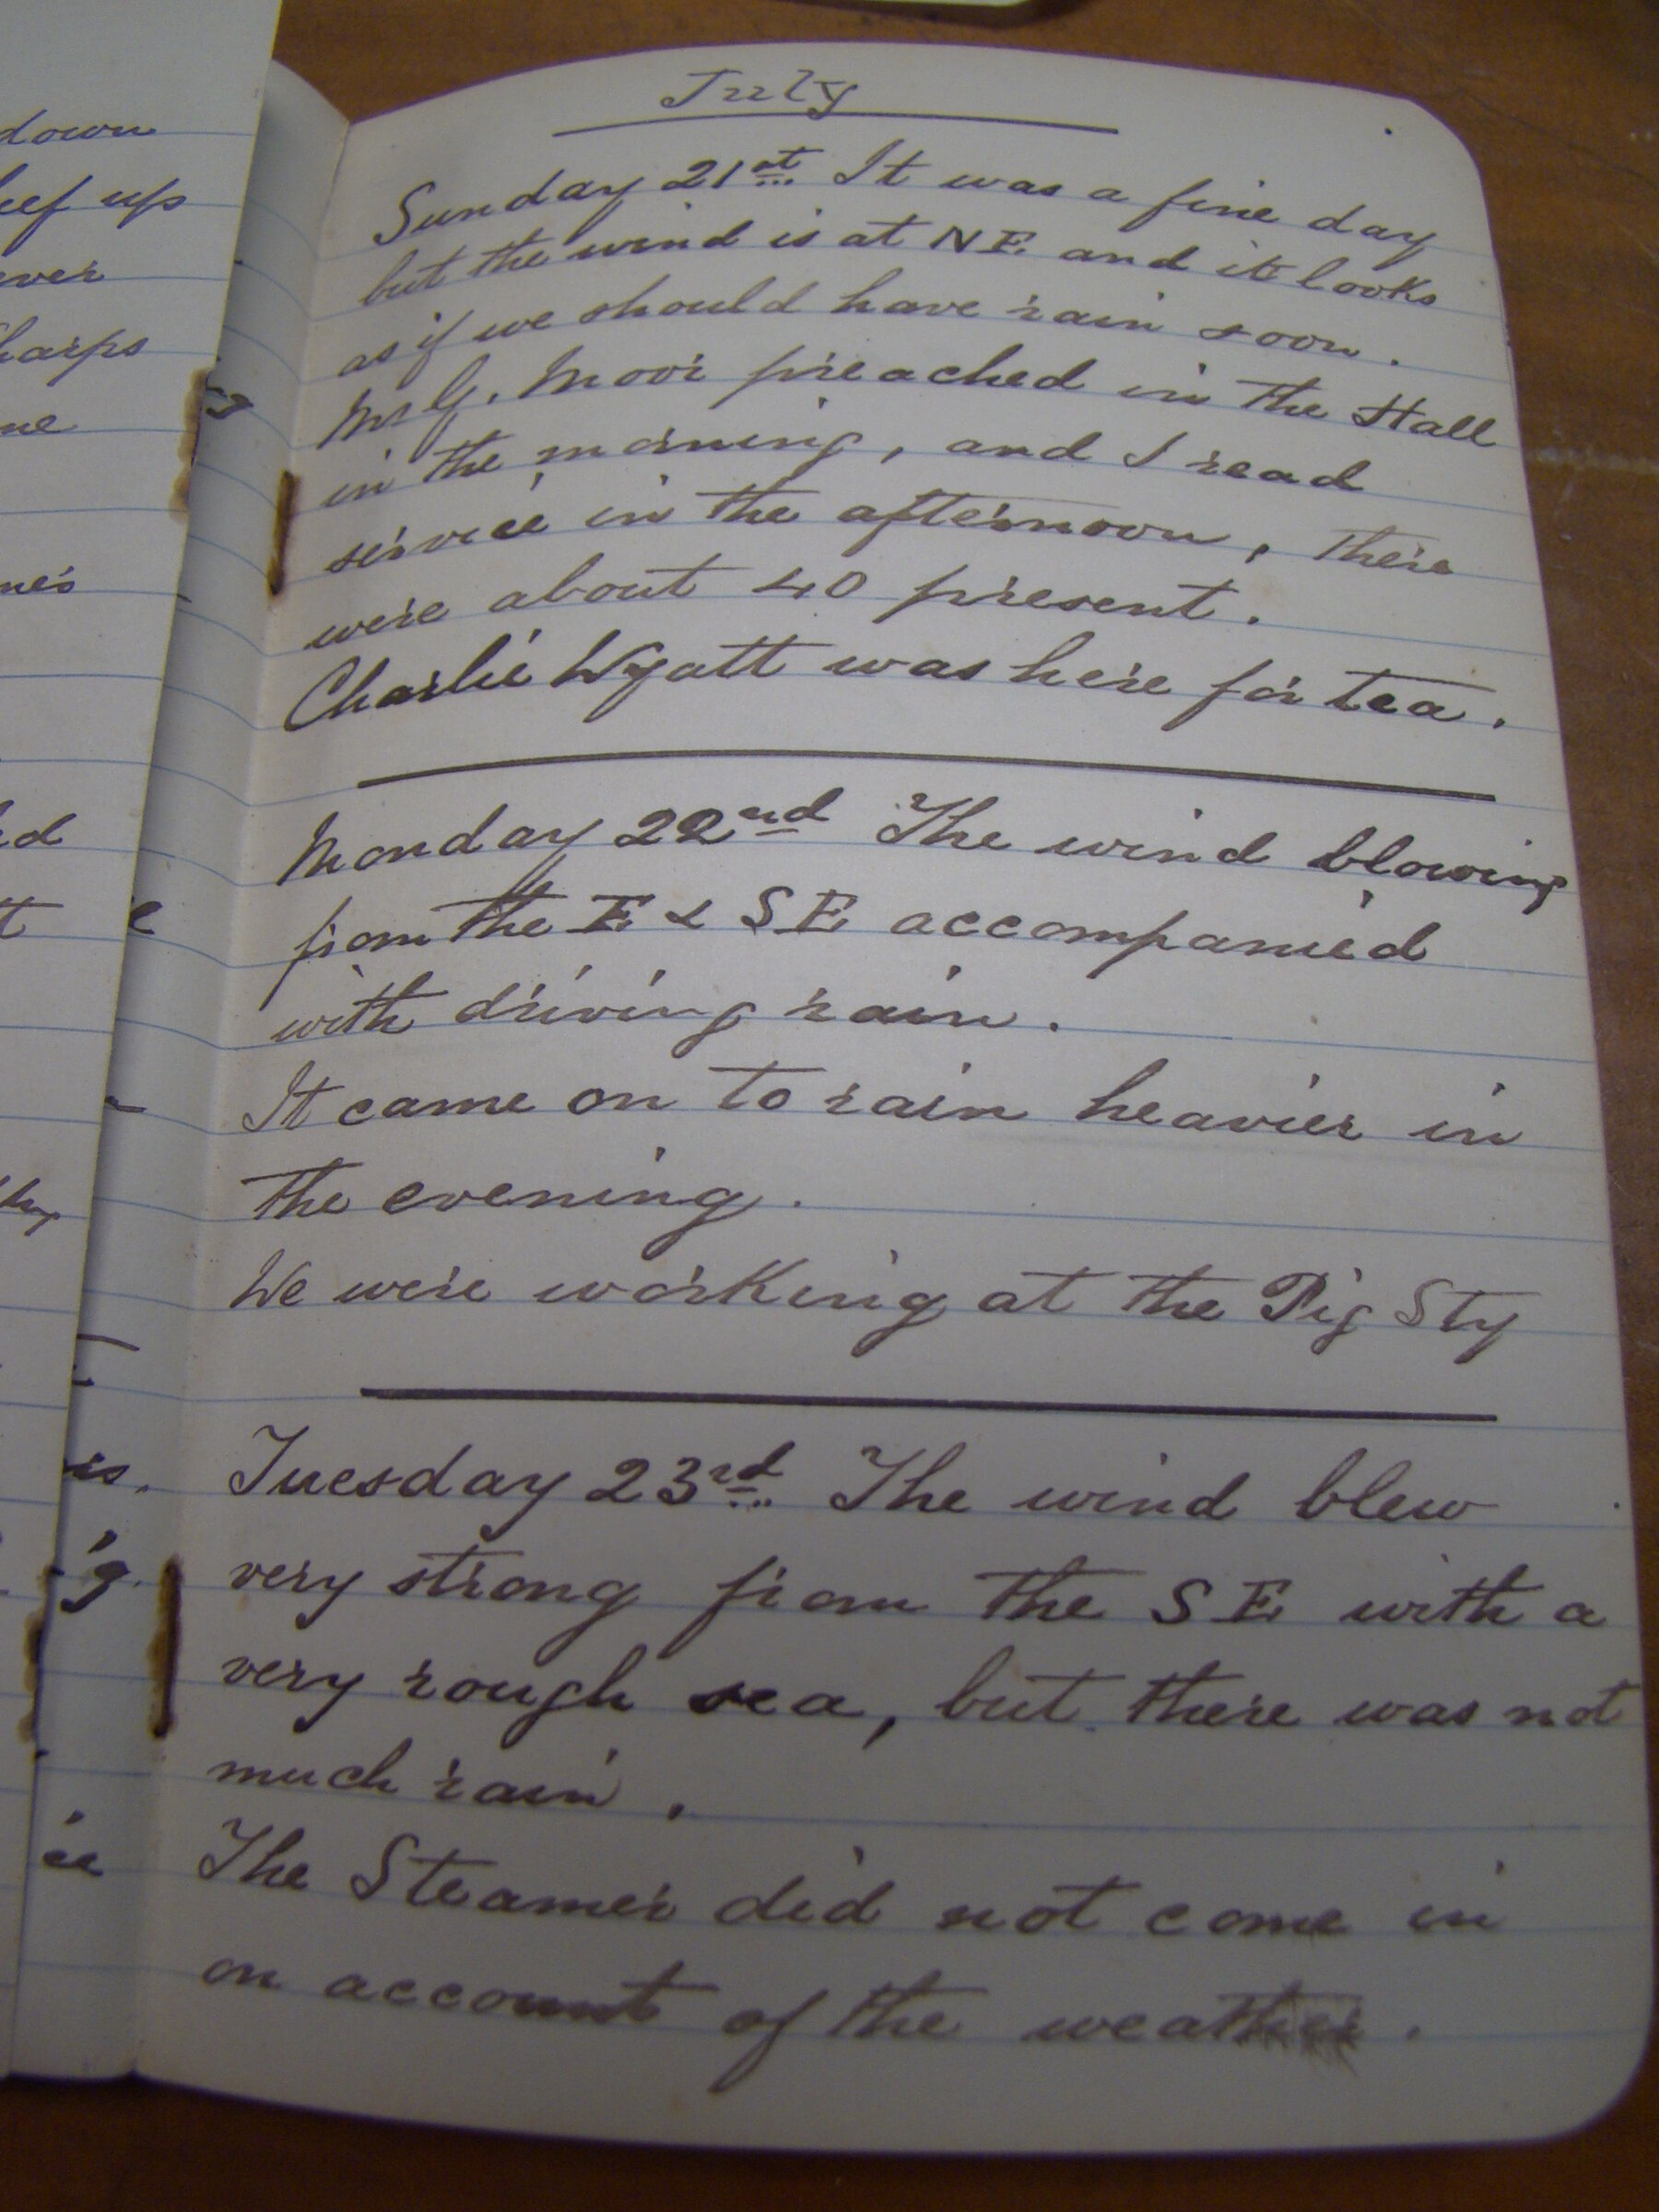 down
up
ever
harps
July
Sunday 21st It was a fine day
but the wind is at NE and it looks
as if we should have rain soon.
Mr G. Moor preached in the Hall
in the morning, and I read
service in the afternoon, there
were about 40 present.
Charlie Wyatt was here for tea.
Monday 22nd The wind blowing
from the E & SE accompanied
with driving rain.
It came on to rain heavier in
the evening.
We were working at the Pig Sty
Tuesday 23rd The wind blew
very strong from the SE with a
very rough sea, but there was not
much rain.
The Steamer did not come in
on account of the weather.